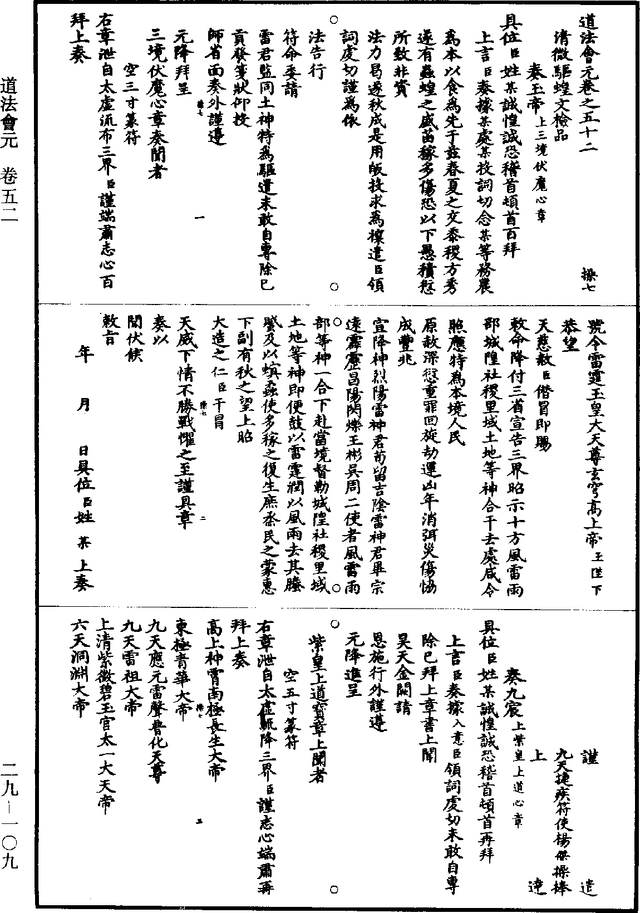 道法會元 卷五二
二九—一〇九
道法會元卷之五十二 撥七
清微驅蝗文檢品
奏玉帝 上三境伏魔心章
具位臣姓某誠惶誠恐稽首頓首百拜
上言臣奏據某處某投詞切念某等務農
為本以食為先于茲春夏之交黍稷方秀
遂有蟲蝗之盛苗稼多傷恐以下愚積愆
所致非賚
法力曷遂秋成是用皈投求為禳遣臣領
詞處切謹為依
法告行
符命委請
雷君監同土神特為驅遣未敢自專除已
貢發箋狀仰投
師省面奏外謹遵
元降拜呈
三境伏魔心章奏聞者
空三寸篆符
右章泄自太虛流布三界臣謹端肅志心百
拜上奏
號令雷霆玉皇大天尊玄穹高上帝玉陛下
恭望
天慈赦臣僭冒即賜
敕命降付三省宣告三界昭示十方風雷雨
部城隍社稷里域土地等神合干去處咸令
照應特為本境人民
原赦深愆重罪回旋劫運凶年消弭災傷協
成豐兆
宣降神烈陽雷神君苟留吉陰雷神君畢宗
遠霹靂昌陽閃爍王彬吳周二使者風雷雨
部等神一合下赴當境督勒城隍社稷里域
土地等神即便鼓以雷霆潤以風雨去其螣
蟹及以蟥蟲使多稼之復生庶烝民之蒙惠
下副有秋之望上昭
大造之仁臣干冒
天威下情不勝戰懼之至謹具章
奏以
聞伏候
敕旨
年 月 日具位臣姓 某 上奏
謹 遣
九天捷疾符使楊傑操捧
上 達
奏九宸 上紫皇上道心章
具位臣姓某誠惶誠恐稽首頓首再拜
上言臣奏據入意臣領詞處切未敢自專
除已拜上章書上聞
昊天金闕請
恩施行外謹遵
元降進呈
紫皇上道寶章上聞者
空五寸篆符
右章泄自太虛甒降三界臣謹志心端肅再
拜上奏
高上神霄南極長生大帝
東極青華大帝
九天應元雷聲普化天尊
九天雷祖大帝
上清紫微碧玉宮太一大天帝
六天洞淵大帝